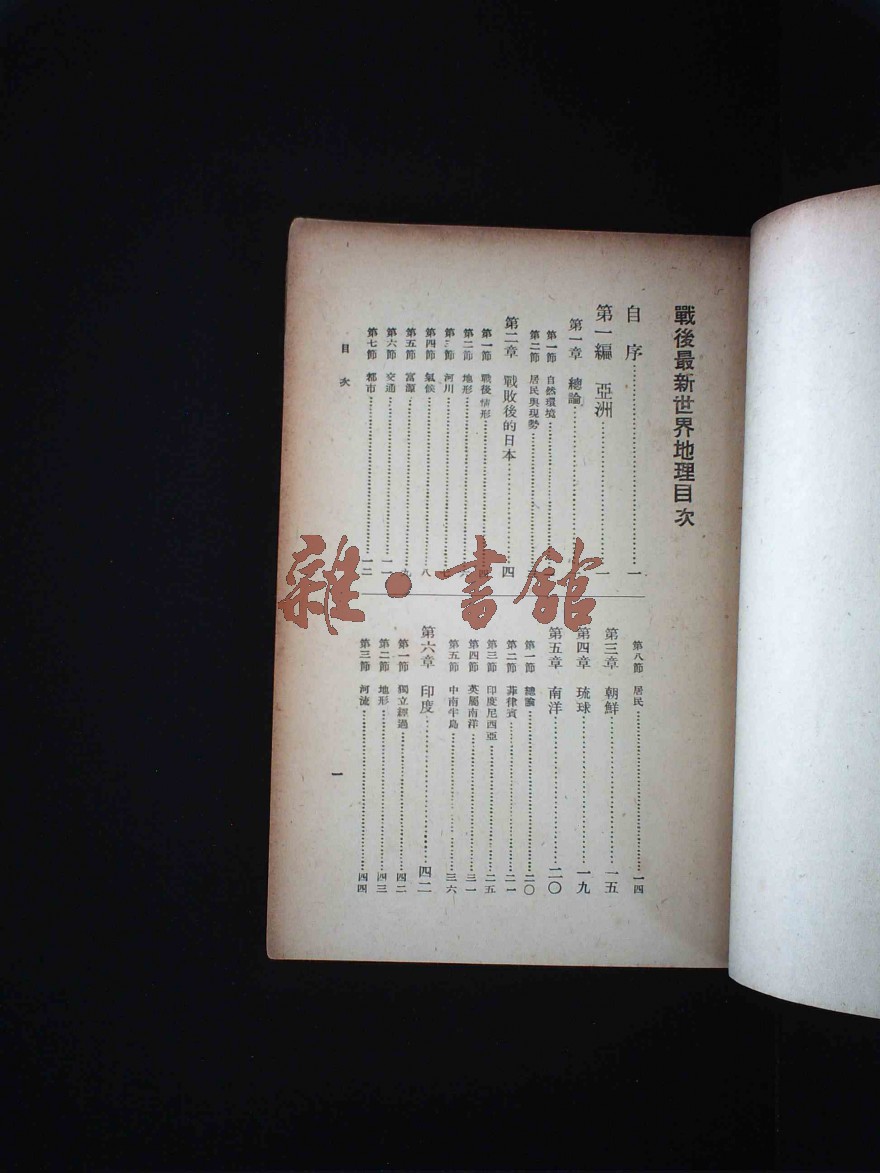 戰後最新世界地理目次
自序……一
第一編 亞洲……一
第一章 總論……
第一節 自然環境……
第二節 居民與現勢……
第二章 戰敗後的日本……四
第一節 戰後情形……四
第二節 地形……
第三節 河川……
第四節 氣候……八
第五節 富源……九
第六節 交通……一一
第七節 都市……一二
第八節 居民……一四
第三章 朝鮮……一五
第四章 琉球……一九
第五章 南洋……二〇
第一節 總論……二〇
第二節 菲律賓……二一
第三節 印度尼西亞……二五
第四節 英屬南洋……三一
第五節 中南半島……三六
第六章 印度……四二
第一節 獨立經過……四二
第二節 地形……四三
第三節 河流……四四
目次
一
雜·書館